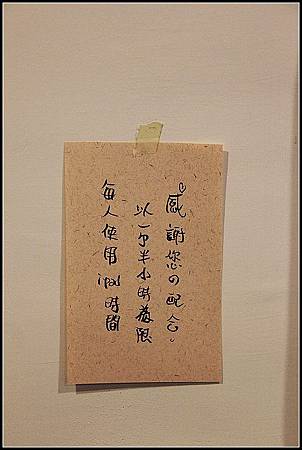 每人使用ipad時間
以一个半小時為限
感謝您の配合。